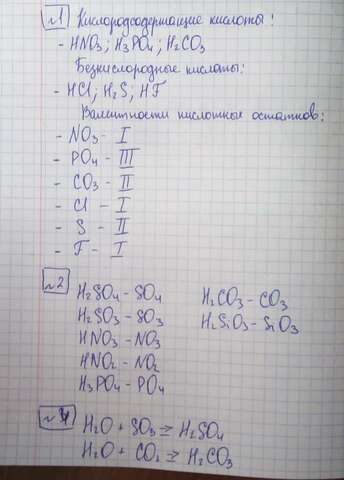 №1 Кислородсодержащие кислоты:
- HNO₃; H₃PO₄; H₂CO₃
Безкислородные кислоты:
- HCl; H₂S; HF
Валентности кислотных остатков:
- NO₃ - I
- PO₄ - III
- CO₃ - II
- Cl - I
- S - II
- F - I
№2
H₂SO₄ - SO₄
H₂SO₃ - SO₃
HNO₃ - NO₃
HNO₂ - NO₂
H₃PO₄ - PO₄
H₂CO₃ - CO₃
H₂SiO₃ - SiO₃
№4
H₂O + SO₃ ⇄ H₂SO₄
H₂O + CO₂ ⇄ H₂CO₃